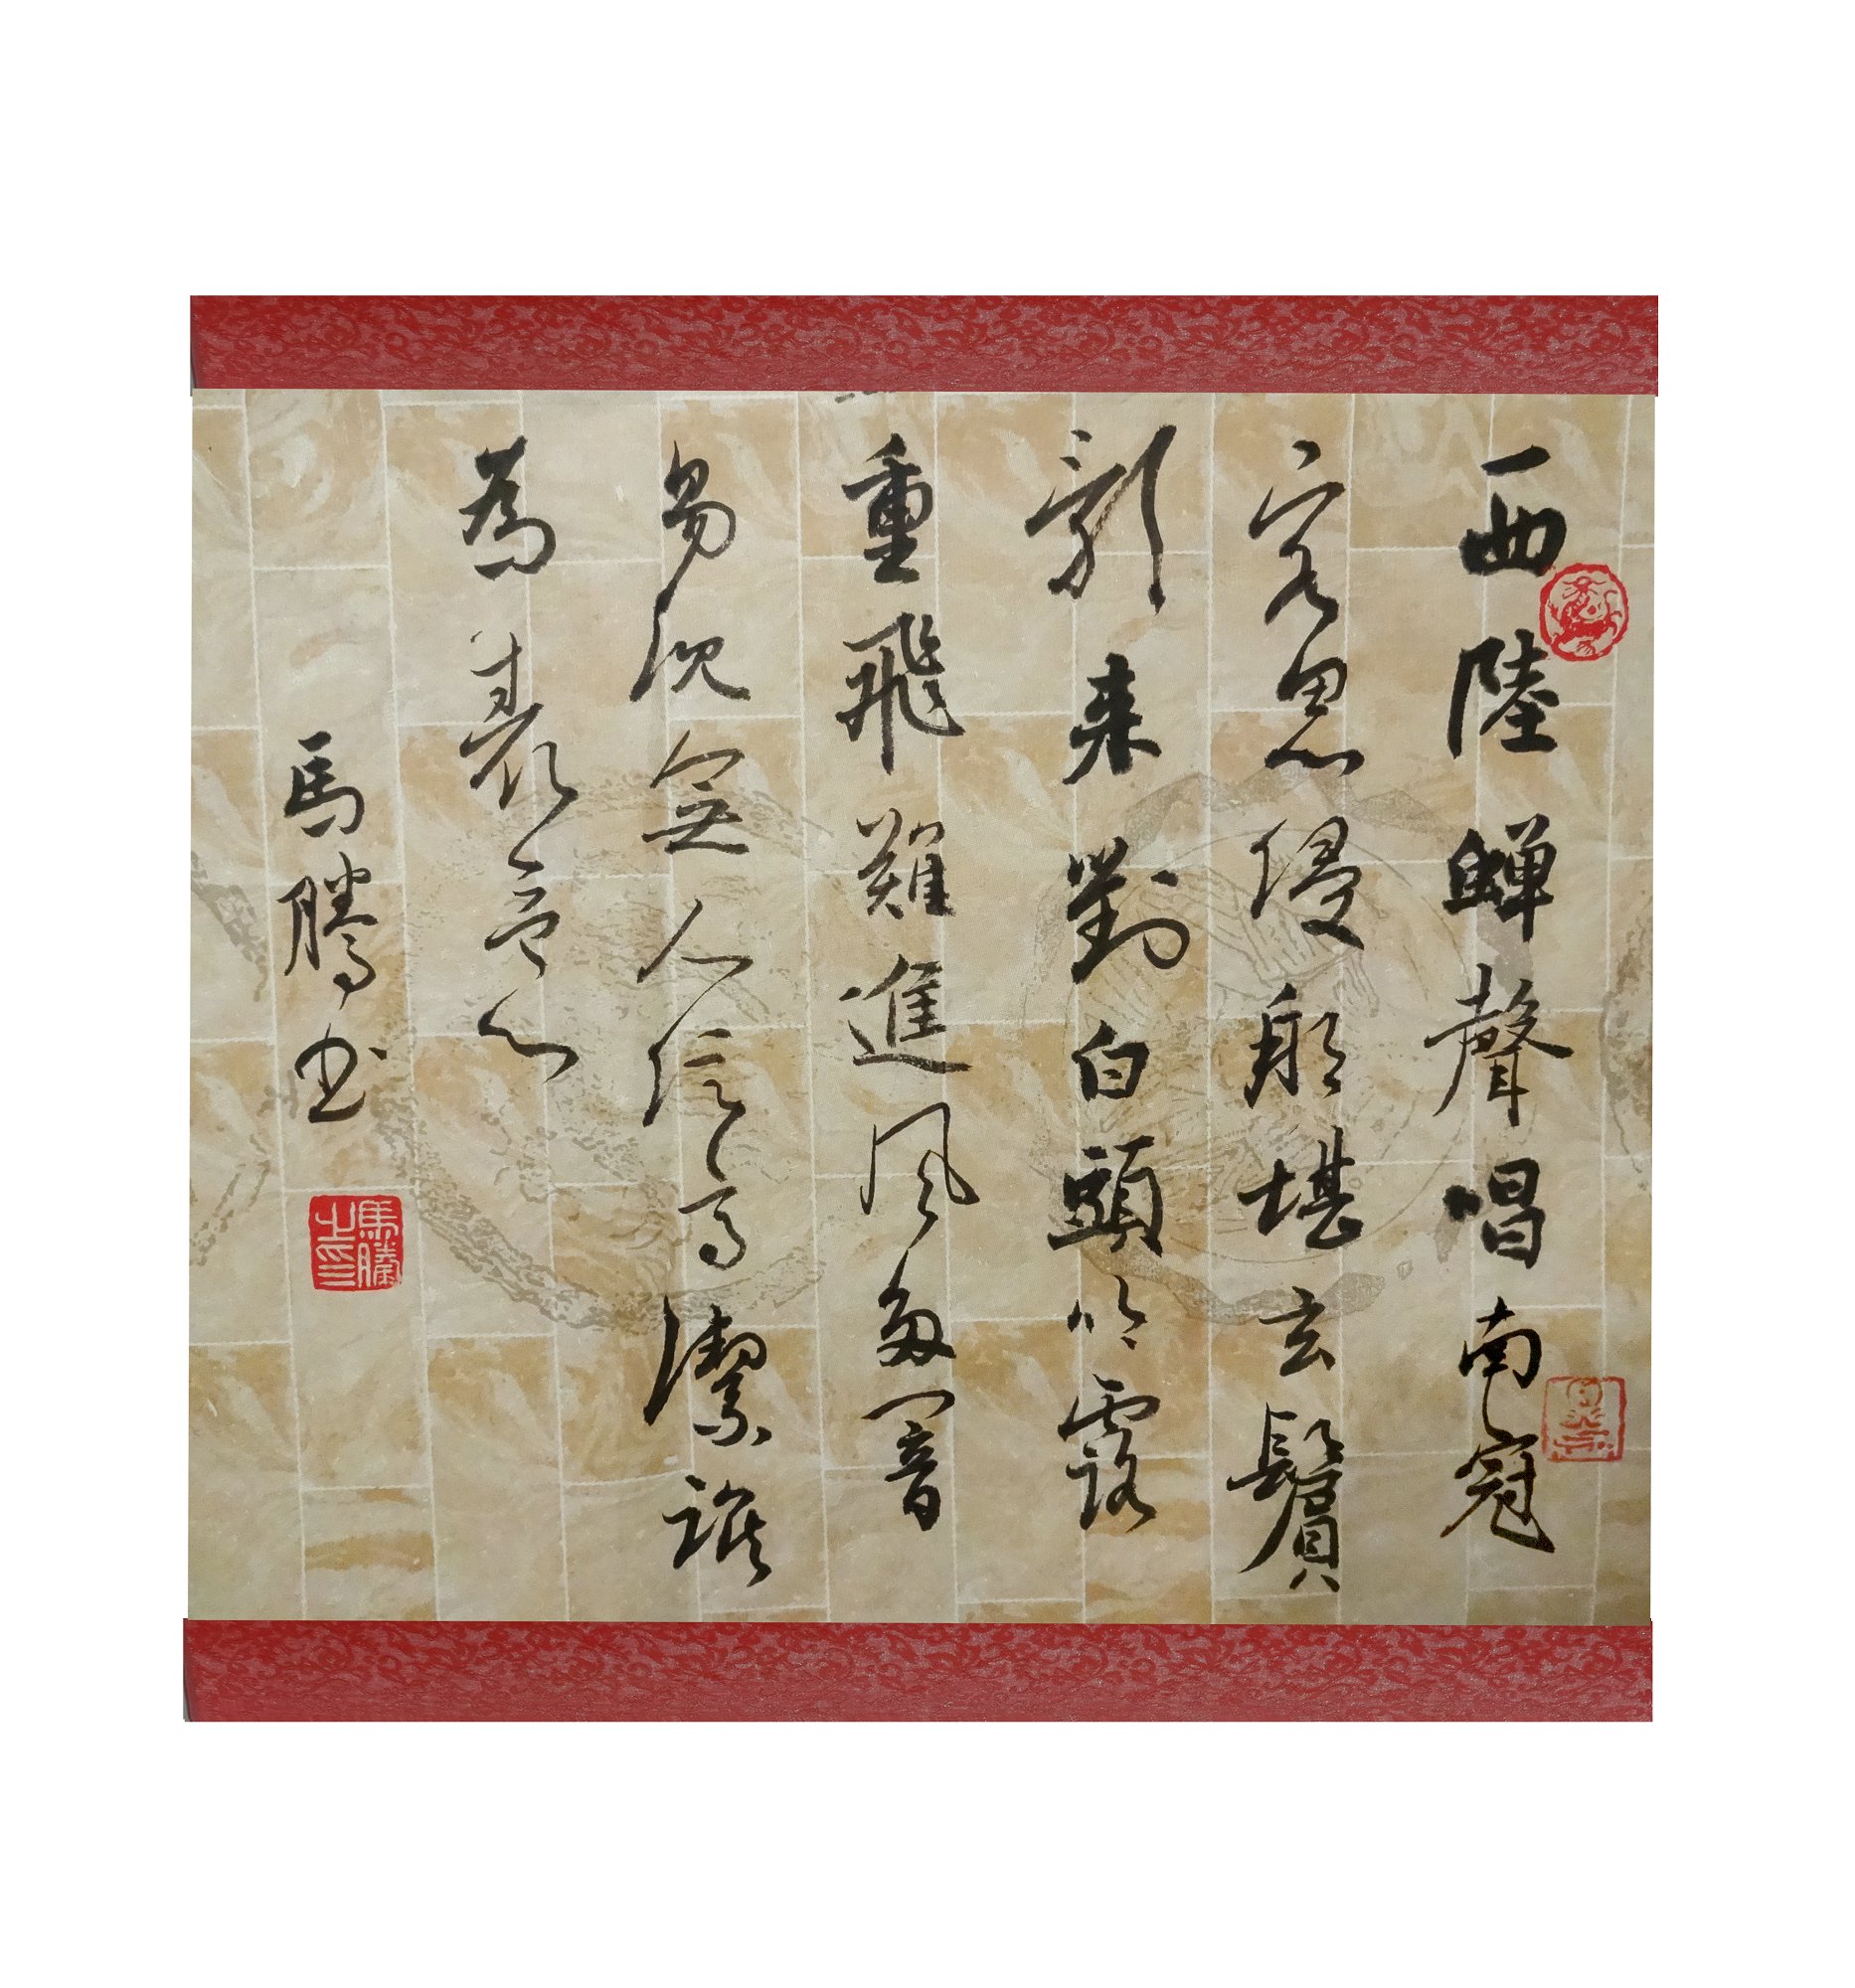 西陸蟬聲唱南冠
客思侵那堪玄鬢
影来對白頭吟露
重飛難進風多響
易沉無人信高潔誰
為表予心
馬騰书
馬騰之印